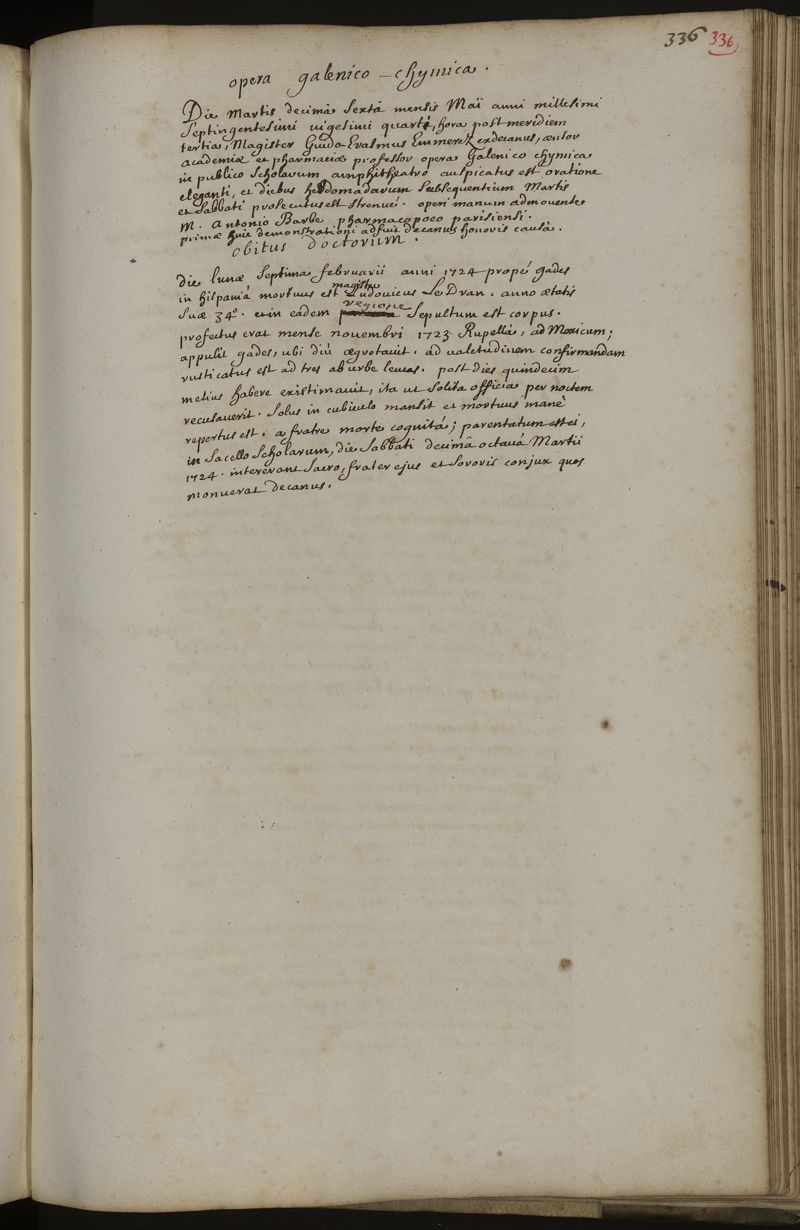 336 336
opera galenico-chymica.
Die Martis decimâ sextâ mensis Maii anni millesimi
septingentesimi vigesimi quarti, hora post meridiem
tertia, Magister Guido Erasmus Emmerez exdecanus, censor
academiæ et pharmaciæ professor opera Galenico chymica
in publico scholarum amphitheatro auspicatus est oratione
eleganti, et diebus hebdomadarum subsequentium Martis
et sabbati prosecutus est strenue. operi manum admovente
M. Antonio Barbe pharmacopoeo parisiensi.
primæ huic demonstrationi adfuit decanus honoris causâ.
obitus doctorum.
die lunæ septima februarii anni 1724 propé gades
in hispaniâ mortuus est magister Ludovicus Le Dran. anno ætatis
suæ 34°. et in eadem regione sepultum est corpus.
profectus erat mense novembri 1723 Rupellâ, ad Mexicum;
appulit gades, ubi diù ægrotavit. ad valetudinem confirmandam
rusticatus est ad tres ab urbe leucas. post dies quindecim
melius habere existimavit, ita ut solita officia per noctem
recusaverit. solus in cubiculo mansit et mortuus manè
repertus est. a fratre morte cognitâ; parentatum est ei,
in sacello scholarum, die sabbati decimâ octavâ Martii
1724. intererant sacro, frater ejus et sororis conjux quos
monuerat decanus.